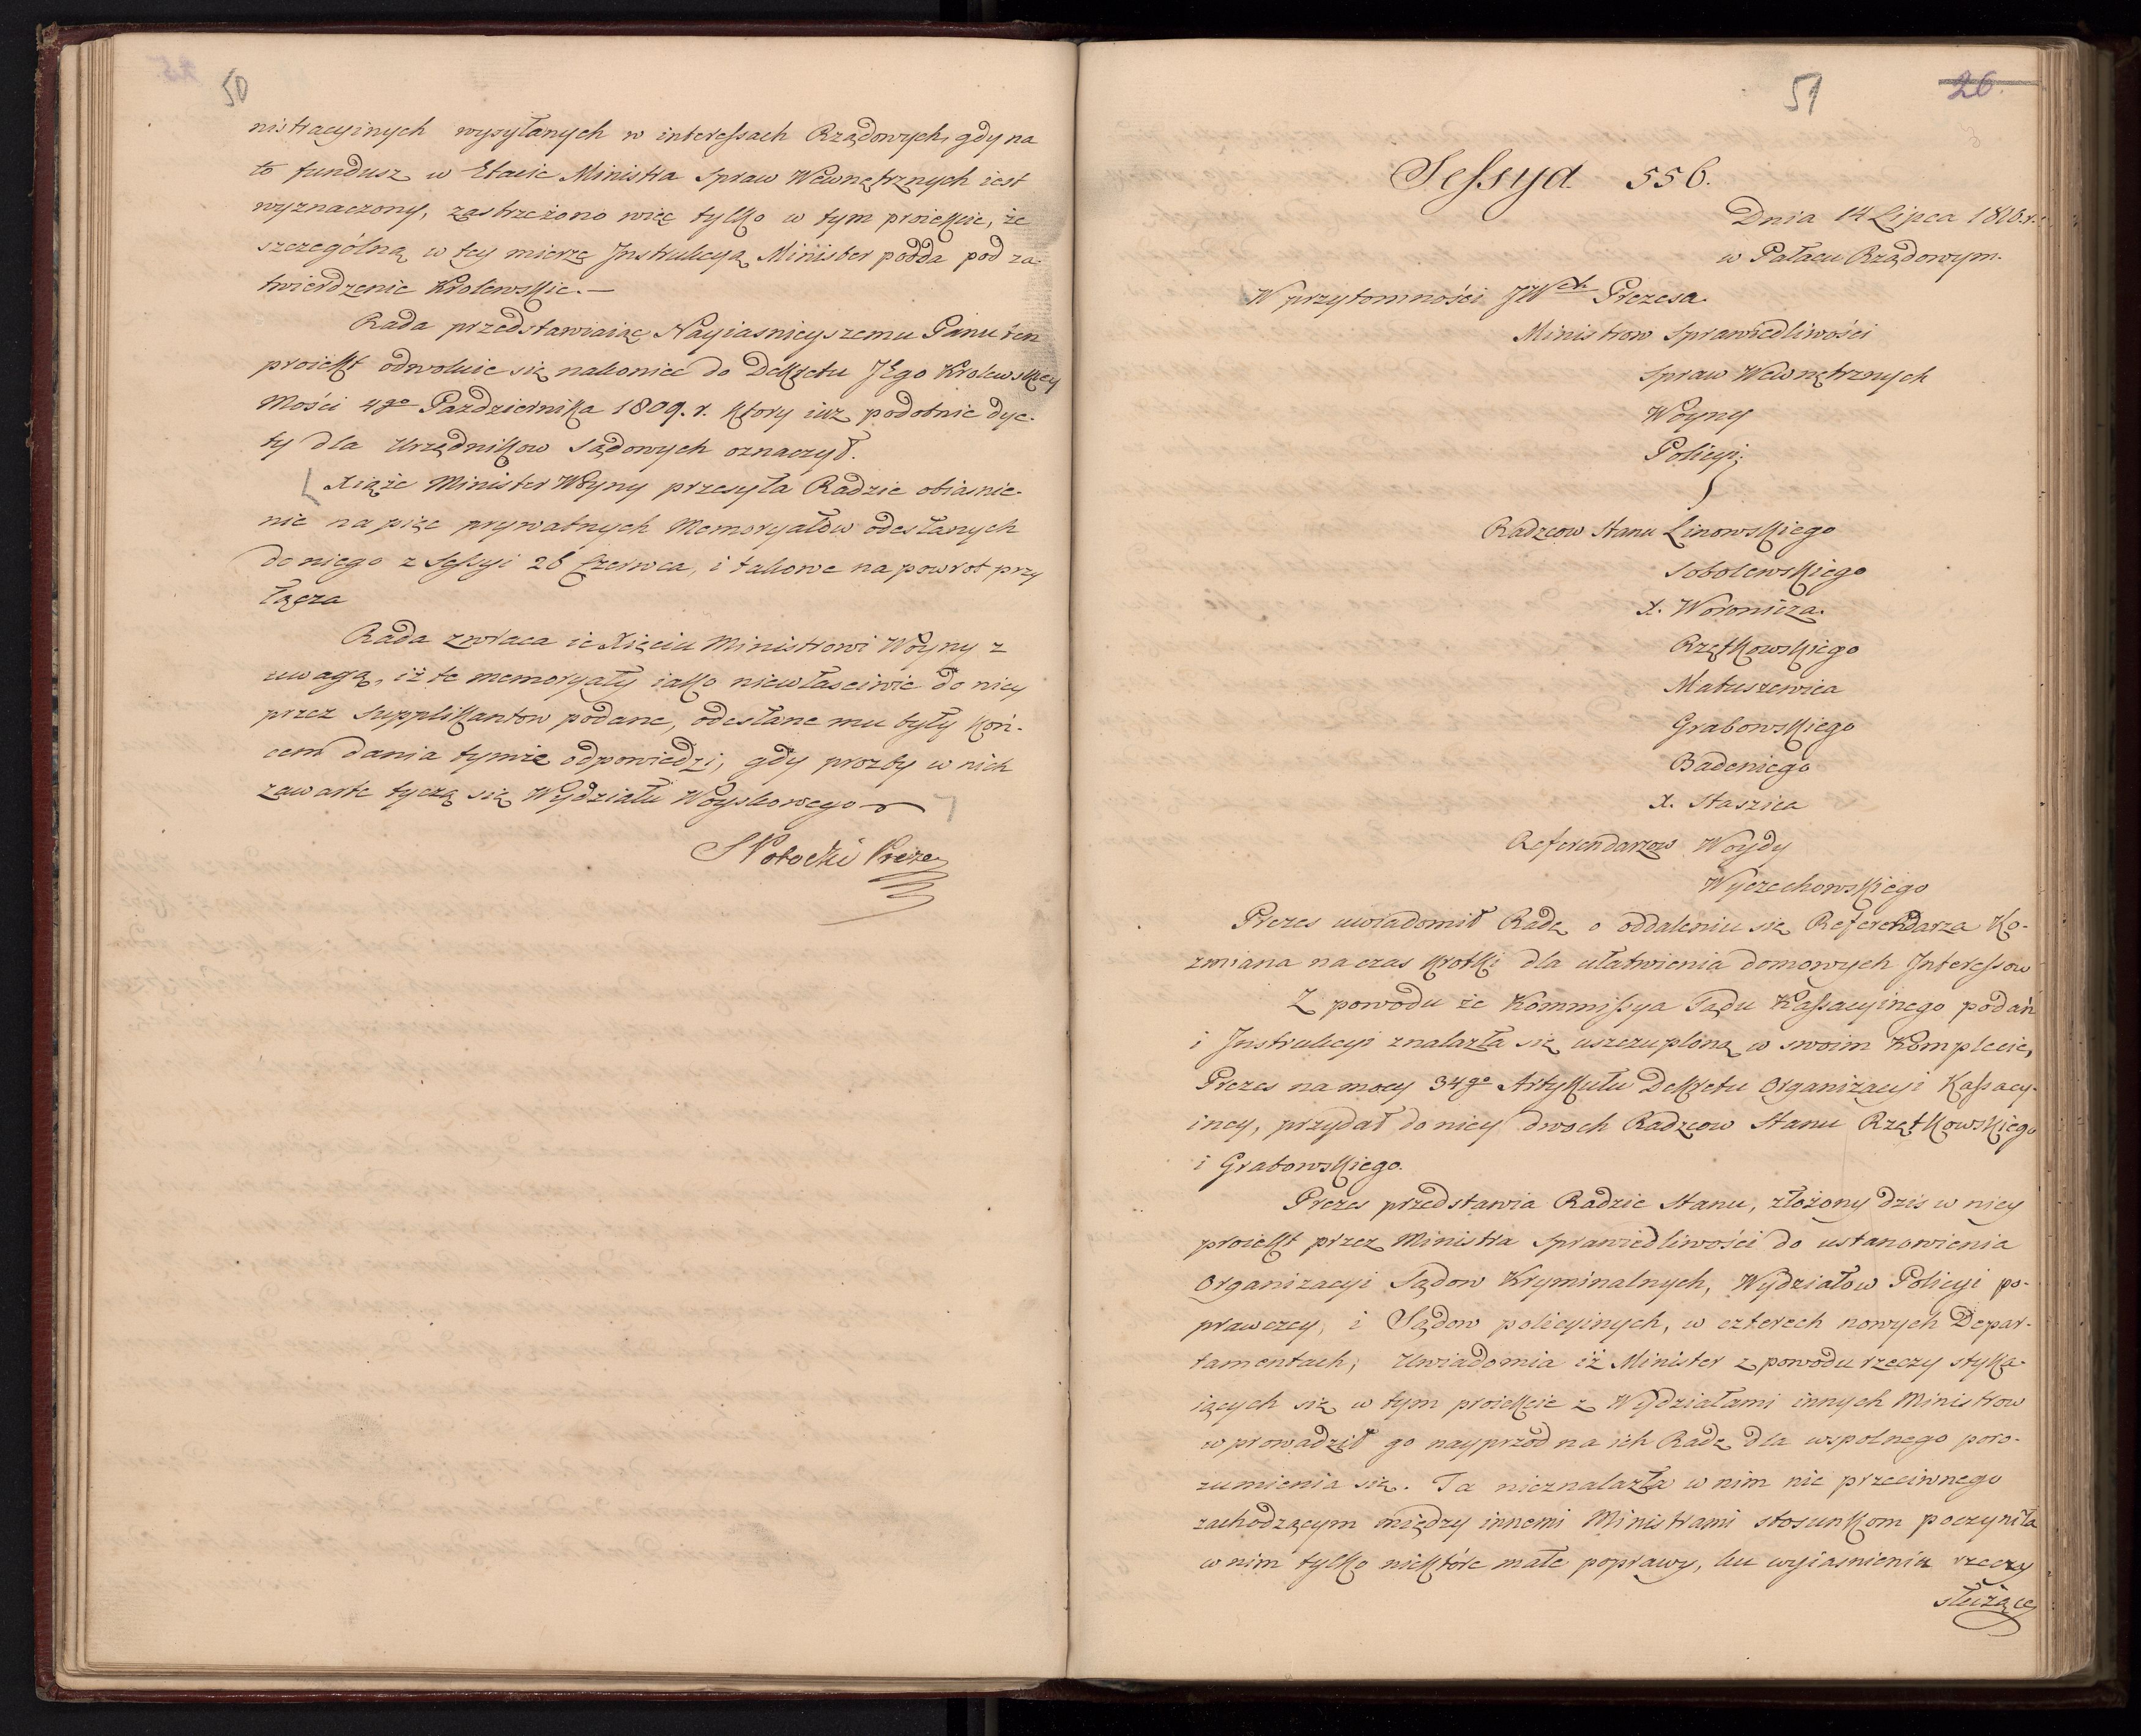 50
nistracyinych wysyłanych w interessach Rządowych, gdy na
to fundusz w Etacie Ministra Spraw Wewnętrznych iest
wyznaczony, zastrzeżono więc tylko w tym proiekcie, że
szczególną w tey mierze Instrukcyą Minister podda pod za-
twierdzenie Krolewskie.—
Rada przedstawiaiąc Nayiasnieyszemu Panu ten
proiekt odwołuie się nakoniec do Dekretu JEgo Krolewskiey
Mości 4go Pazdziernika 1809. r. ktory iuz podobnie dye-
ty dla Urzędnikow Sądowych oznaczył.
Xiąże Minister Woyny przesyła Radzie obiasnie-
nie na pięc prywatnych Memoryałów odesłanych
do niego z Sessyi 26 Czerwca, i takowe na powrot przy
łącza
Rada zwraca ie Xięciu Ministrowi Woyny z
uwagą, iż te memoryały iako niewłasciwie do niey
przez Supplikantow podane, odesłane mu były koń-
cem dania tymże odpowiedzi, gdy prozby w nich
zawarte tyczą się Wydziału Woyskowego
S Potocki Prezes
51
26.
Sessya 556.
Dnia 14 Lipca 1810 r.
w Pałacu Rządowym.
W przytomności JWch Prezesa.
Ministrow Sprawiedliwości
Spraw Wewnętrznych
Woyny
Policyi;
Radzcow Stanu Linowskiego
Sobolewskiego
X. Woronicza.
Rzętkowskiego
Matuszewica
Grabowskiego
Badeniego
X. Staszica
Referendarzow Woydy
Wyczechowskiego
Prezes uwiadomił Radę o oddaleniu się Referendarza Ko-
zmiana na czas krotki dla ułatwienia domowych Interessow
Z powodu że Kommissya Sądu Kassacyinego podań
i Instrukcyi znalazła się uszczuploną w swoim Komplecie,
Prezes na mocy 34go Artykułu Dekretu Organizacyi Kassacy-
iney, przydał do niey dwoch Radzcow Stanu Rzętkowskiego
i Grabowskiego.
Prezes przedstawia Radzie Stanu, złożony dzis w niey
proiekt przez Ministra Sprawiedliwości do ustanowienia
Organizacyi Sądow Kryminalnych, Wydziałow Policyi po-
prawczey, i Sądow policyinych, w czterech nowych Depar-
tamentach; Uwiadomia iż Minister z powodu rzeczy styka-
iących się w tym proiekcie z Wydziałami innych Ministrow
wprowadził go nayprzod na ich Radę dla wspolnego poro-
zumienia się. Ta nieznalazła w nim nic przeciwnego
zachodzącym między innemi Ministrami stosunkom poczyniła
w nim tylko niektóre małe poprawy, ku wyiasnieniu rzeczy
służące